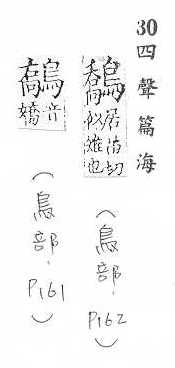 30 四聲篇海
鷮 居消切似雉也
(鳥部.P162)
鷮 音嬌
(鳥部.P161)